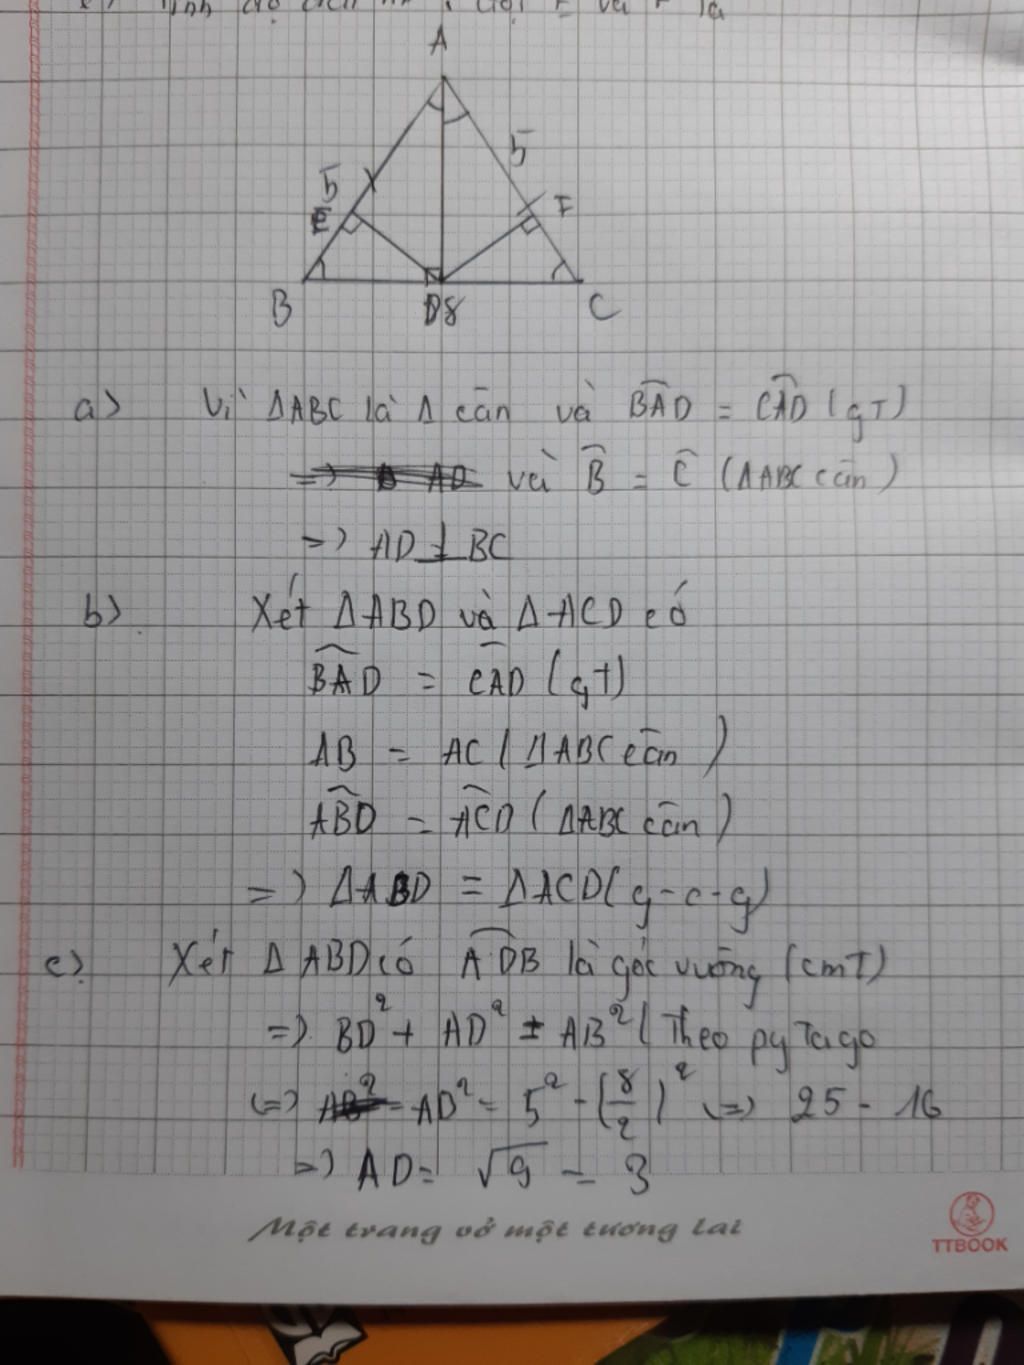 A
5
5
E
F
B
D8
C
a) Vì ΔABC là Δ cân và BAD = CAD (gT)
và B = C (ΔABC cân)
=> AD ⊥ BC
b) Xét ΔABD và ΔACD có
BAD = CAD (gT)
AB = AC (ΔABC cân)
ABD = ACD (ΔABC cân)
=> ΔABD = ΔACD (g-c-g)
c) Xét ΔABD có ADB là góc vuông (cmT)
=> BD² + AD² = AB² (Theo pyTago
<=> AD² = 5² - (8/2)² <=> 25 - 16
=> AD = √9 = 3
Một trang vở một tương lai
TTBOOK